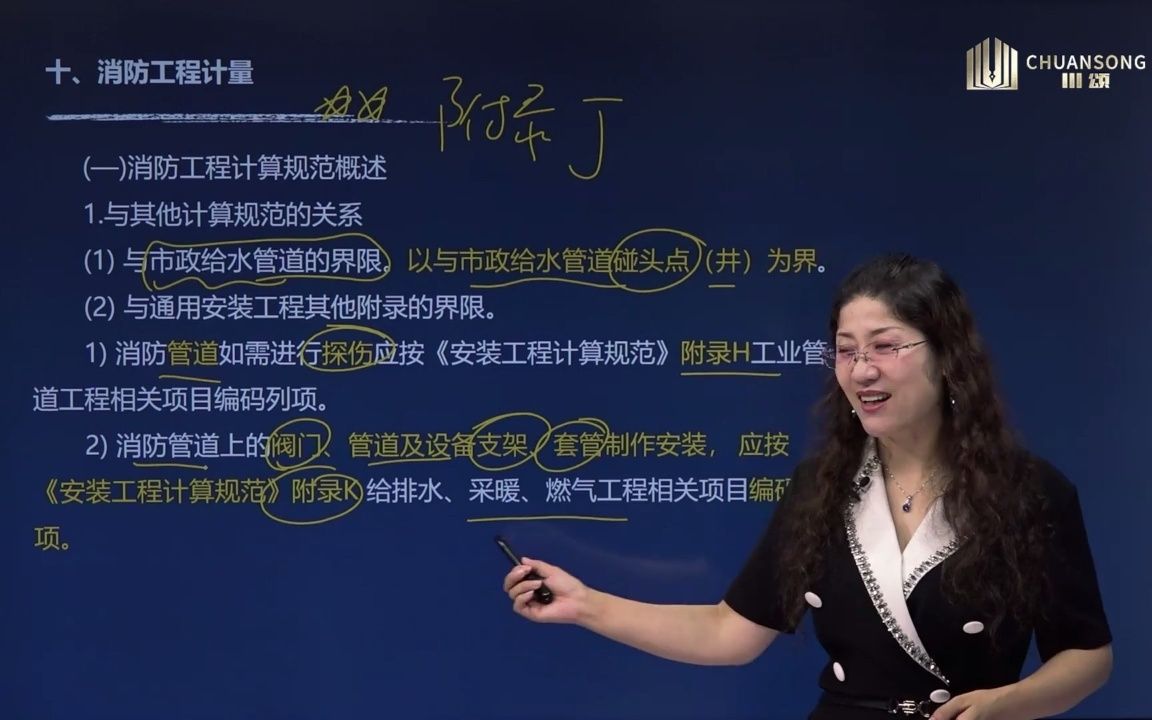 十、消防工程计量
CHUANSONG
川頌
附录J
(一)消防工程计算规范概述
1.与其他计算规范的关系
(1) 与市政给水管道的界限。以与市政给水管道碰头点（井）为界。
(2) 与通用安装工程其他附录的界限。
1) 消防管道如需进行探伤应按《安装工程计算规范》附录H工业管
道工程相关项目编码列项。
2) 消防管道上的阀门、管道及设备支架、套管制作安装，应按
《安装工程计算规范》附录K 给排水、采暖、燃气工程相关项目编码
项。